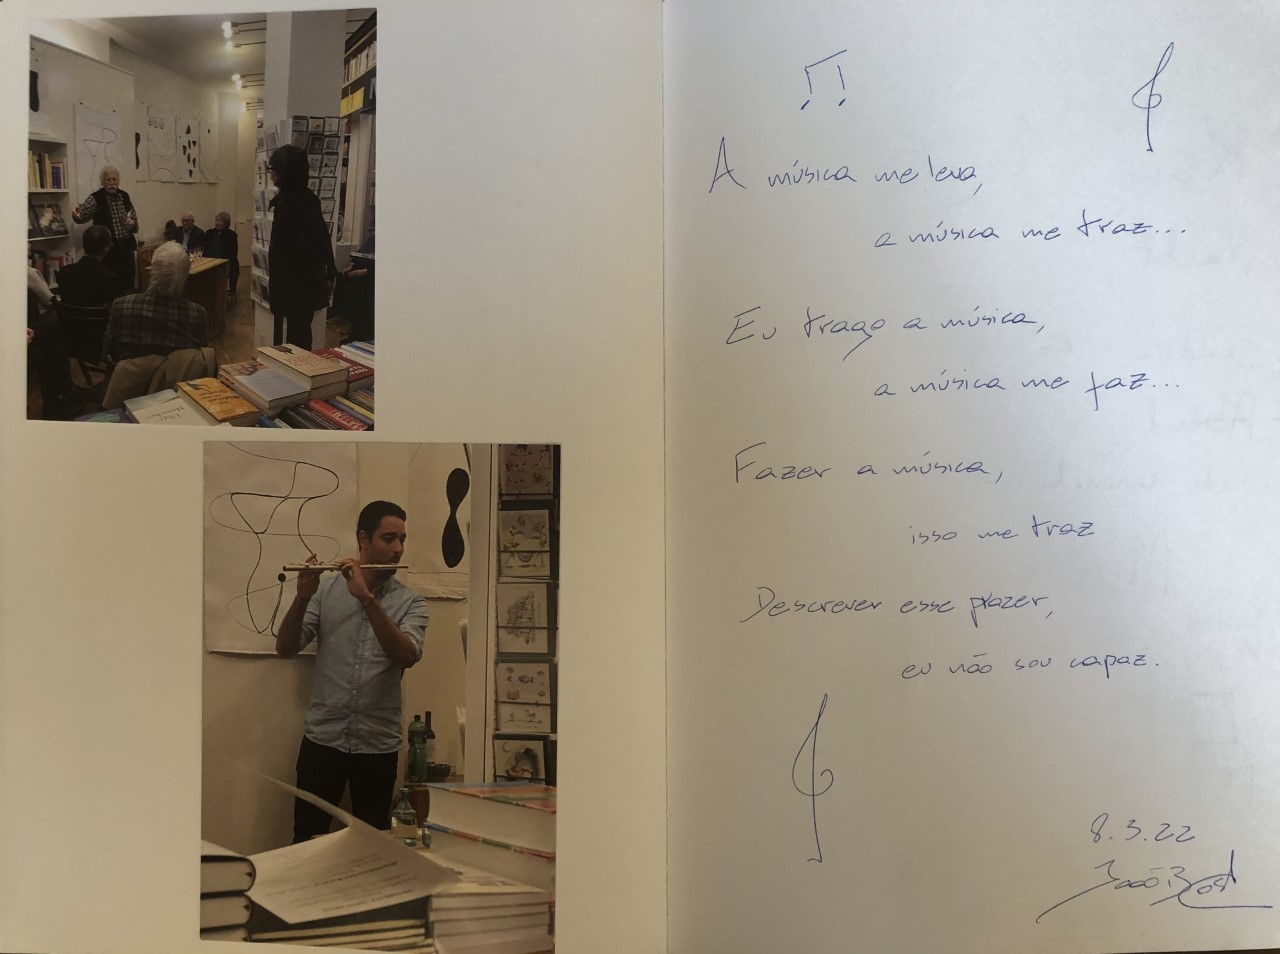 A música me leva,
a música me traz...
Eu trago a música,
a música me faz...
Fazer a música,
isso me traz
Descrever esse prazer,
eu não sou capaz.
8.3.22